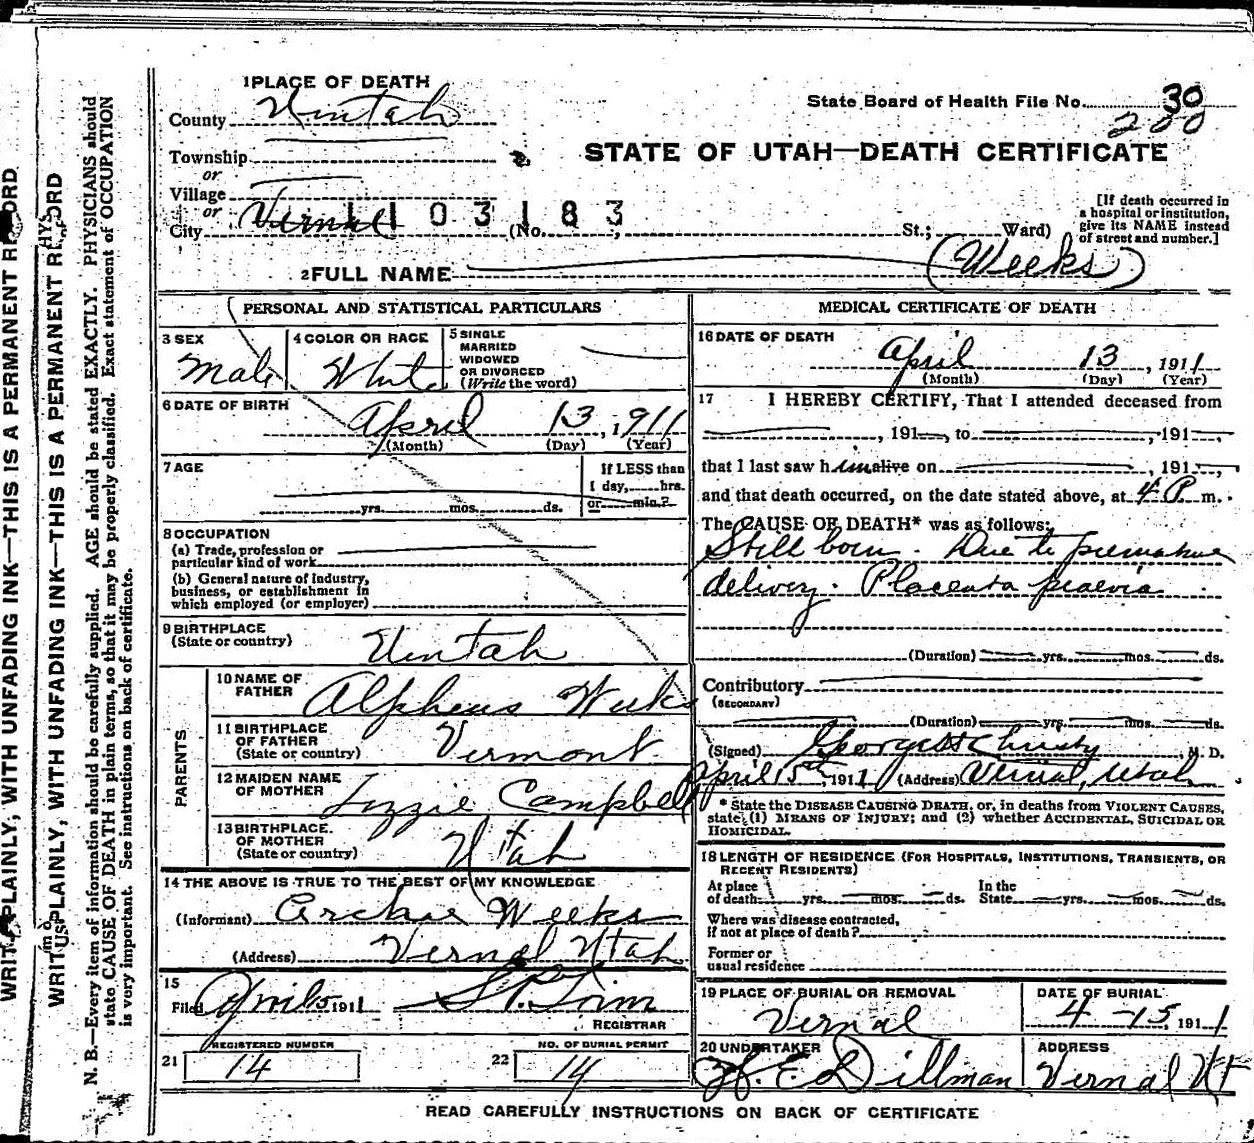 1 PLACE OF DEATH
County Uintah
State Board of Health File No. 30
200
STATE OF UTAH—DEATH CERTIFICATE
Township
or
Village
or
City Vernal (No. , St.; Ward)
1103183
[If death occurred in
a hospital or institution,
give its NAME instead
of street and number.]
2 FULL NAME (Weeks)
PERSONAL AND STATISTICAL PARTICULARS
3 SEX
Male
4 COLOR OR RACE
White
5 SINGLE
MARRIED
WIDOWED
OR DIVORCED
(Write the word)
6 DATE OF BIRTH
April 13, 1911
(Month) (Day) (Year)
7 AGE
yrs. mos. ds.
If LESS than
1 day, hrs.
or min.?
8 OCCUPATION
(a) Trade, profession or
particular kind of work
(b) General nature of Industry,
business, or establishment in
which employed (or employer)
9 BIRTHPLACE
(State or country)
Uintah
PARENTS
10 NAME OF
FATHER
Alpheus Weeks
11 BIRTHPLACE
OF FATHER
(State or country)
Vermont
12 MAIDEN NAME
OF MOTHER
Lizzie Campbell
13 BIRTHPLACE
OF MOTHER
(State or country)
Utah
14 THE ABOVE IS TRUE TO THE BEST OF MY KNOWLEDGE
(Informant) Archie Weeks
(Address) Vernal Utah
15
Filed April 15 1911
REGISTRAR
REGISTERED NUMBER
21 14
NO. OF BURIAL PERMIT
22 14
MEDICAL CERTIFICATE OF DEATH
16 DATE OF DEATH
April 13, 1911
(Month) (Day) (Year)
17 I HEREBY CERTIFY, That I attended deceased from
, 191 , to , 191 ,
that I last saw him alive on , 191 ,
and that death occurred, on the date stated above, at 4 P. m.
The CAUSE OF DEATH* was as follows:
Still born. Due to premature
delivery. Placenta praevia
(Duration) yrs. mos. ds.
Contributory
(SECONDARY)
(Duration) yrs. mos. ds.
(Signed) George H Christy M. D.
April 15th, 1911 (Address) Vernal, Utah
* State the DISEASE CAUSING DEATH, or, in deaths from VIOLENT CAUSES,
state (1) MEANS OF INJURY; and (2) whether ACCIDENTAL, SUICIDAL OR
HOMICIDAL.
18 LENGTH OF RESIDENCE (FOR HOSPITALS, INSTITUTIONS, TRANSIENTS, OR
RECENT RESIDENTS)
At place
of death yrs. mos. ds.
In the
State yrs. mos. ds.
Where was disease contracted,
if not at place of death?
Former or
usual residence
19 PLACE OF BURIAL OR REMOVAL
Vernal
DATE OF BURIAL
4-15, 1911
20 UNDERTAKER
E Dillman
ADDRESS
Vernal Ut
READ CAREFULLY INSTRUCTIONS ON BACK OF CERTIFICATE
WRITE PLAINLY, WITH UNFADING INK—THIS IS A PERMANENT RECORD
WRITE PLAINLY, WITH UNFADING INK—THIS IS A PERMANENT RECORD
N. B.—Every item of information should be carefully supplied. AGE should be stated EXACTLY. PHYSICIANS should
state CAUSE OF DEATH in plain terms, so that it may be properly classified. Exact statement of OCCUPATION
is very important. See instructions on back of certificate.